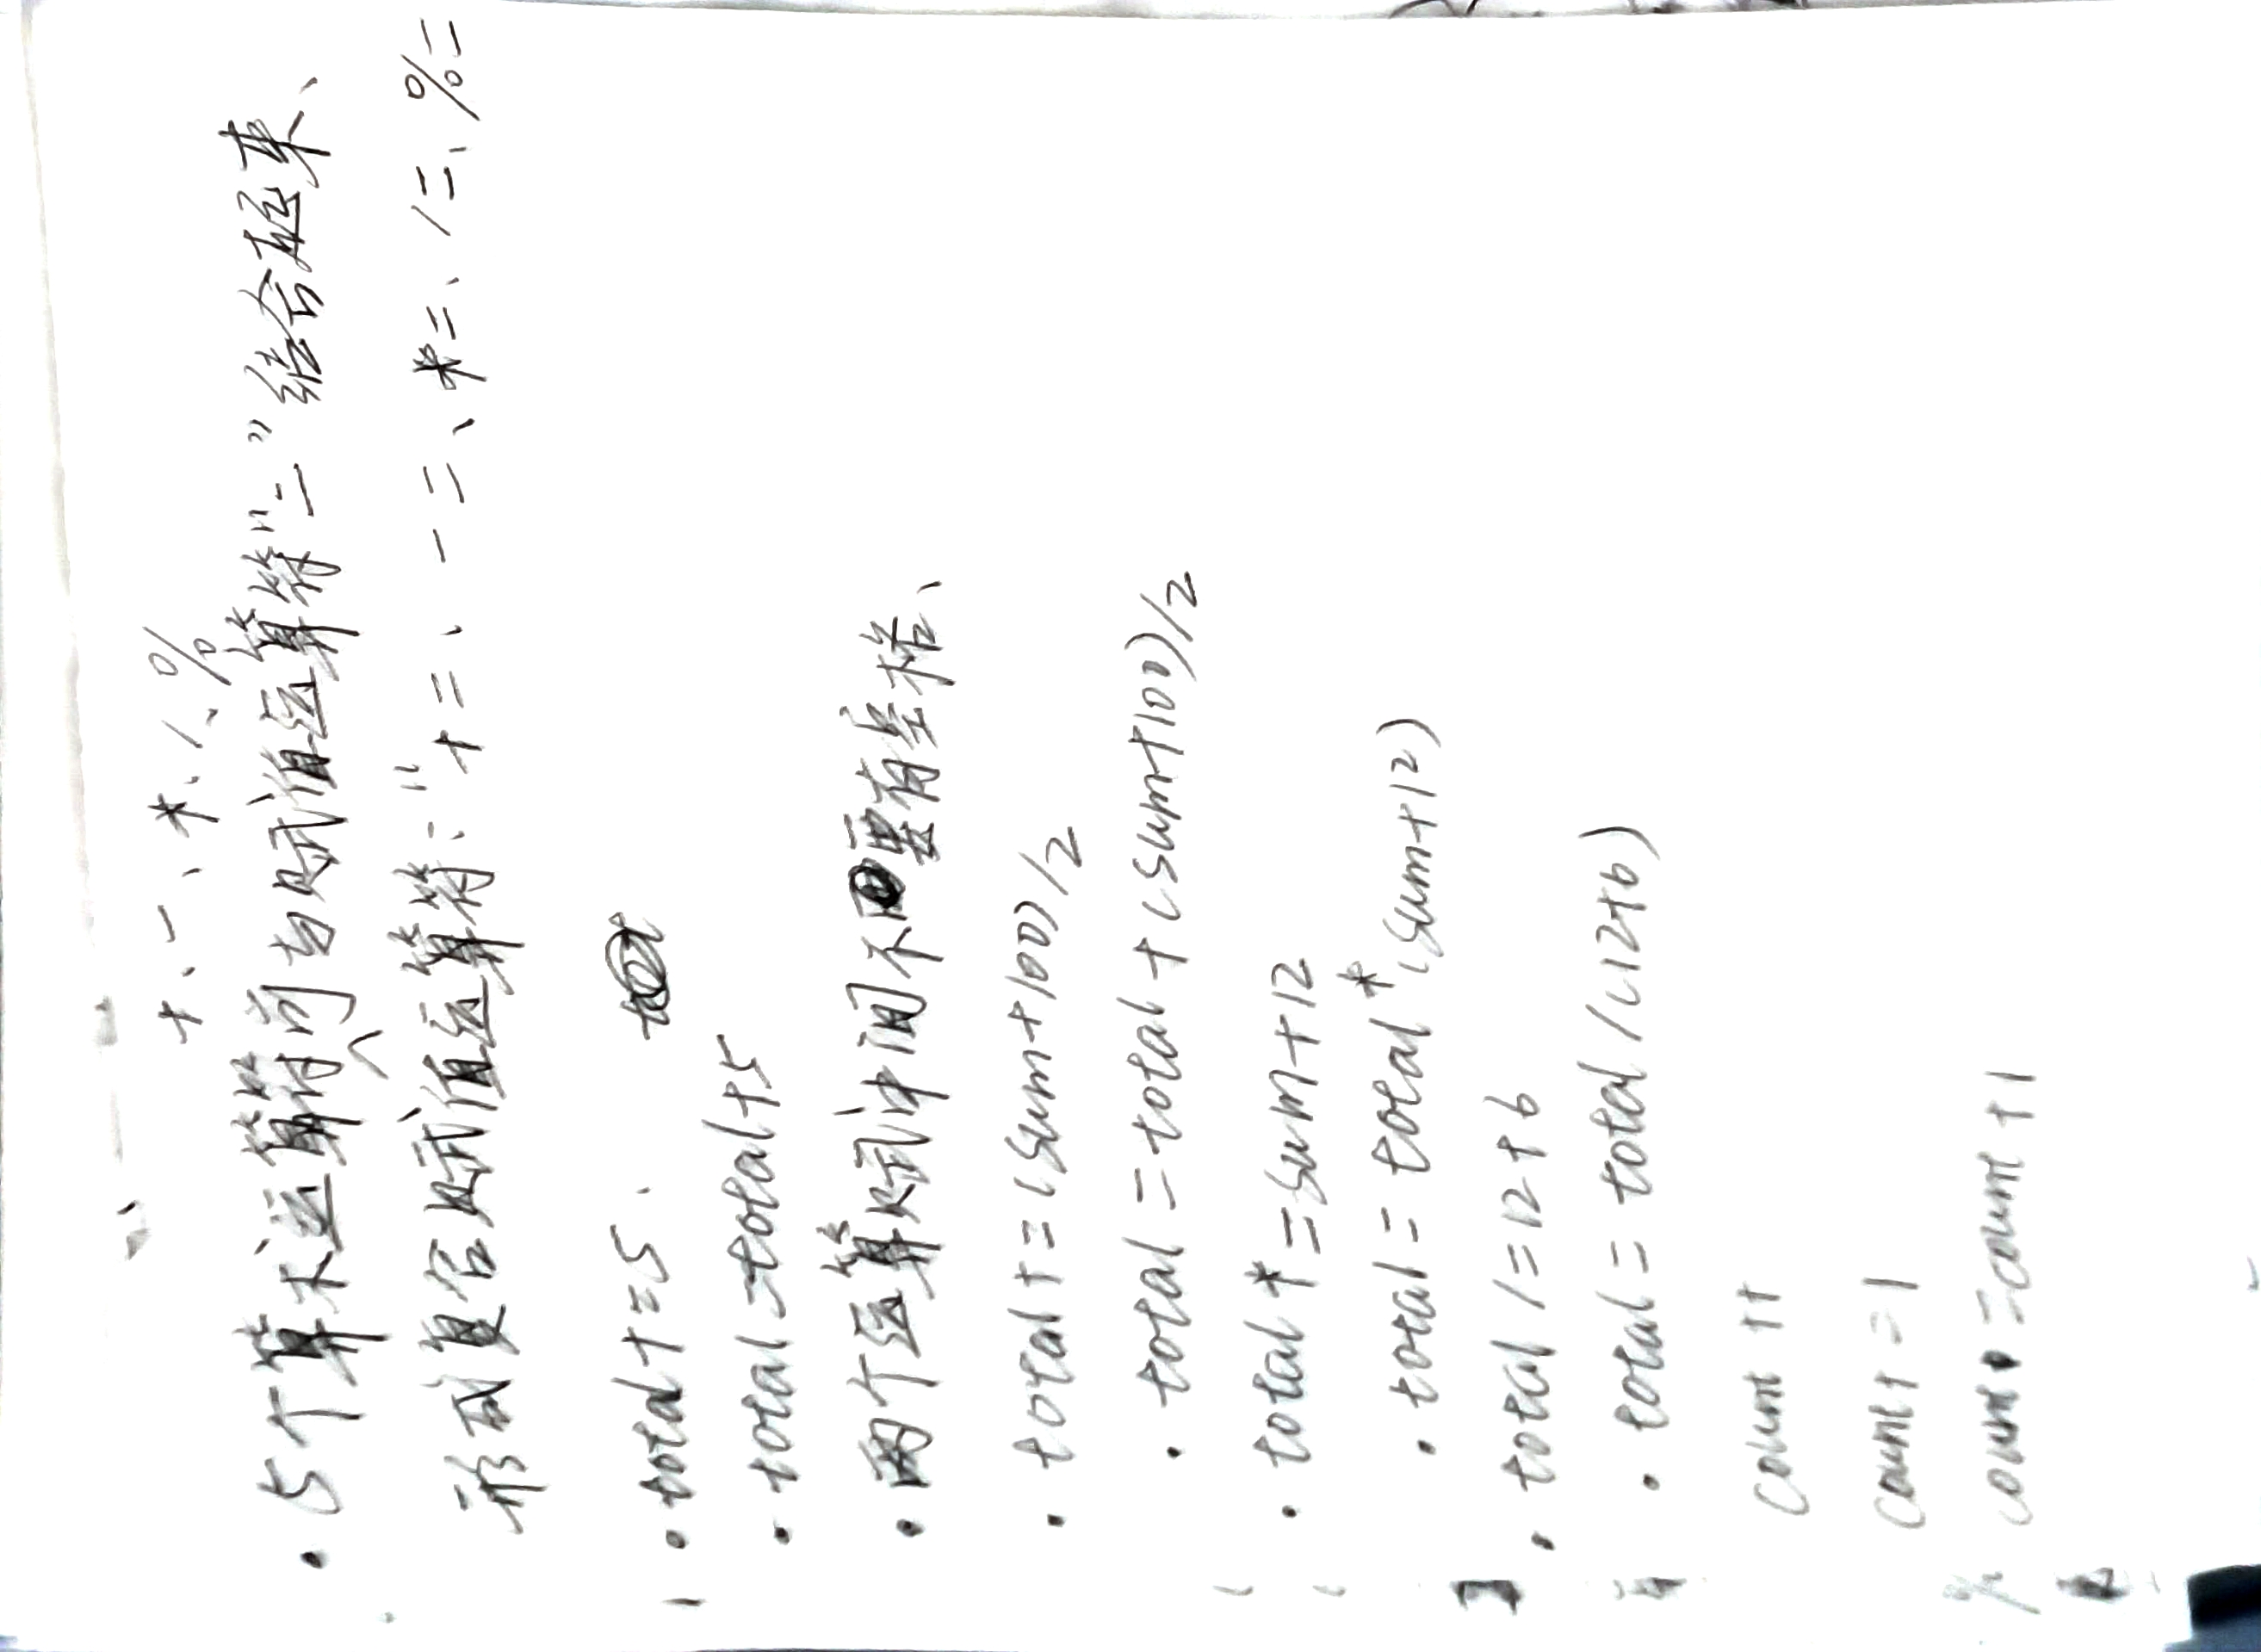 +、-、*、/、%
·5个算术运算符可与赋值运算符"="结合起来、
形成复合赋值运算符:"+=、-=、*=、/=、%=
·total+=5.
·total=total+5
·两个运算赋中间不要有空格、
·total+=(sum+100)/2
·total=total+(sum+100)/2
·total*=sum+12
·total=total*(sum+12)
·total/=12+6
·total=total/(12+6)
count++
count+=1
count=count+1